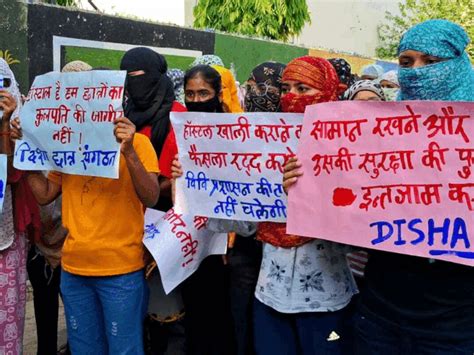 हॉस्टल है हम छात्रों का
कुलपति की जागीर
नहीं !
दिशा छात्र संगठन
हॉस्टल खाली कराने
फैसला रद्द करो
विवि प्रशासन की
नहीं चलेगी
नहीं !
सामान रखने और
उसकी सुरक्षा की
इन्तजाम
DISHA